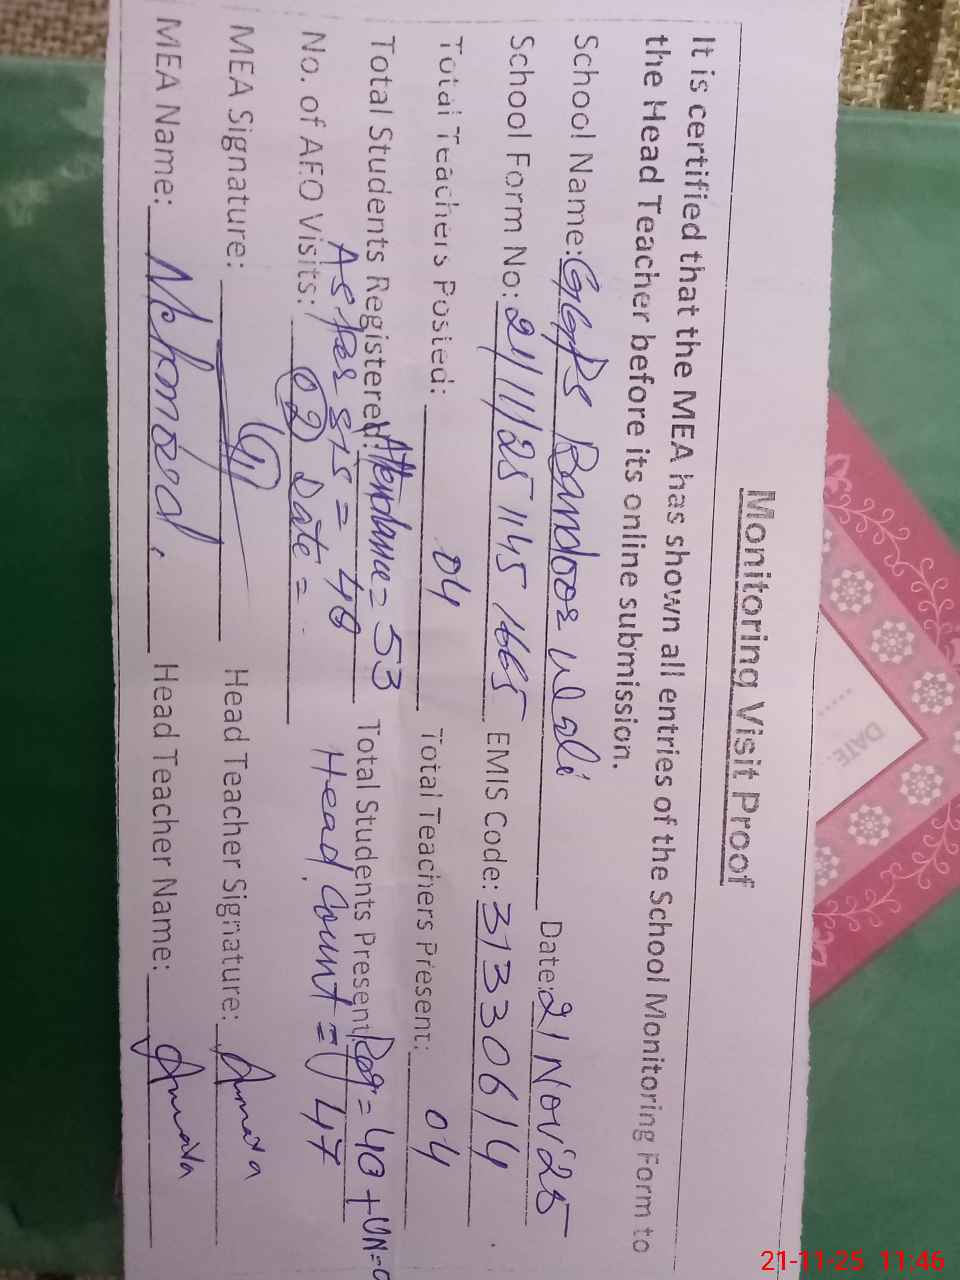 Monitoring Visit Proof
It is certified that the MEA has shown all entries of the School Monitoring Form to
the Head Teacher before its online submission.
School Name: GGPS Bandoor Wali Date: 21 Nov 25
School Form No: 21/11/25 1145 1665 EMIS Code: 31330614
Total Teachers Posted: 04 Total Teachers Present: 04
Total Students Registered: Attendance = 53 Total Students Present: Reg = 40 + UN=
As per SIS = 48 Head Count = 47
No. of AEO Visits: 02 Date =
MEA Signature: Head Teacher Signature:
MEA Name: Mehmood Head Teacher Name:
DATE:
21-11-25 11:46